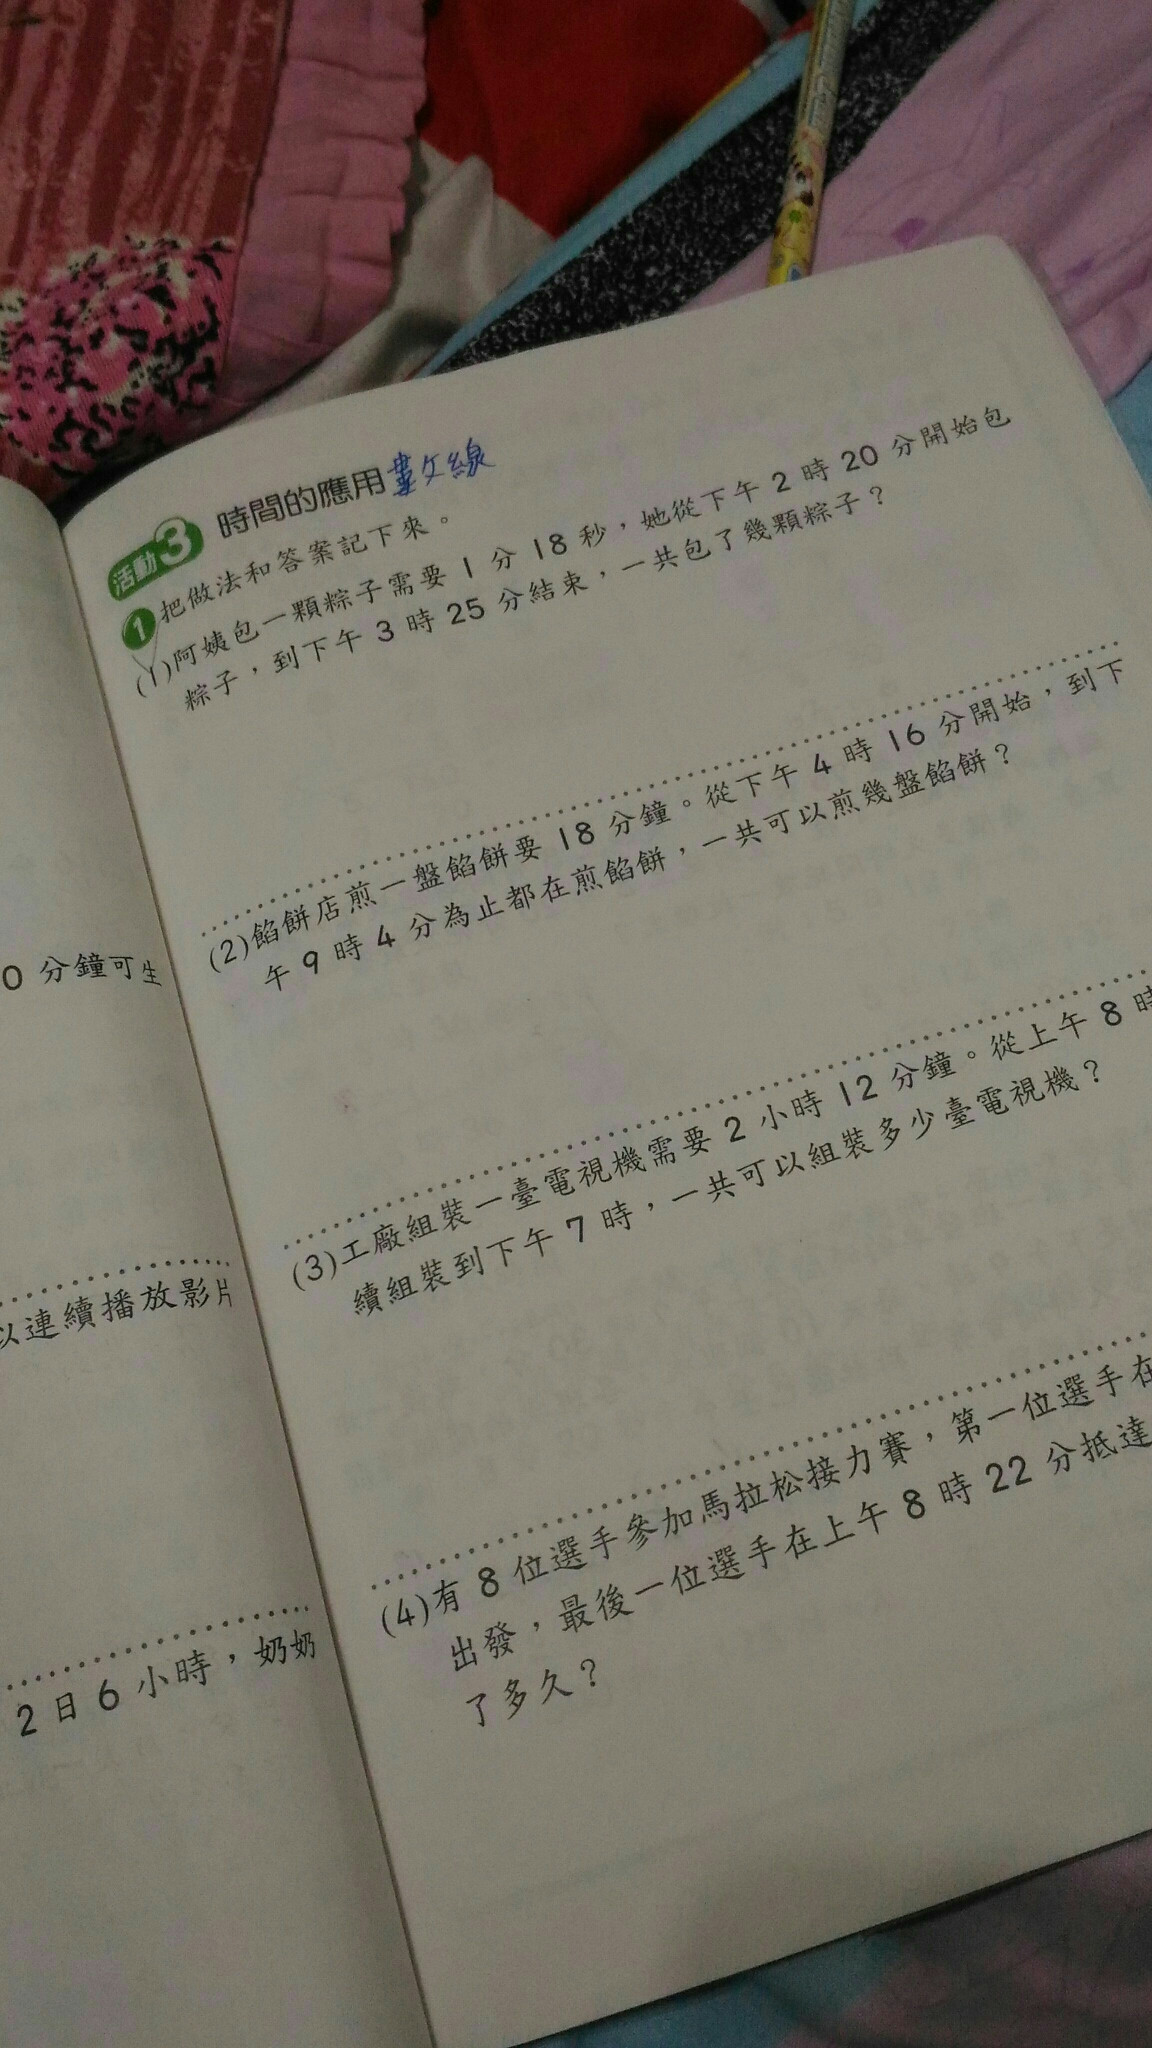 0 分鐘可生
以連續播放影片
2 日 6 小時，奶奶
活動3 時間的應用 畫文線
1 把做法和答案記下來。
(1)阿姨包一顆粽子需要 1 分 18 秒，她從下午 2 時 20 分開始包
粽子，到下午 3 時 25 分結束，一共包了幾顆粽子？
(2)餡餅店煎一盤餡餅要 18 分鐘。從下午 4 時 16 分開始，到下
午 9 時 4 分為止都在煎餡餅，一共可以煎幾盤餡餅？
(3)工廠組裝一臺電視機需要 2 小時 12 分鐘。從上午 8 時
續組裝到下午 7 時，一共可以組裝多少臺電視機？
(4)有 8 位選手參加馬拉松接力賽，第一位選手在
出發，最後一位選手在上午 8 時 22 分抵達
了多久？